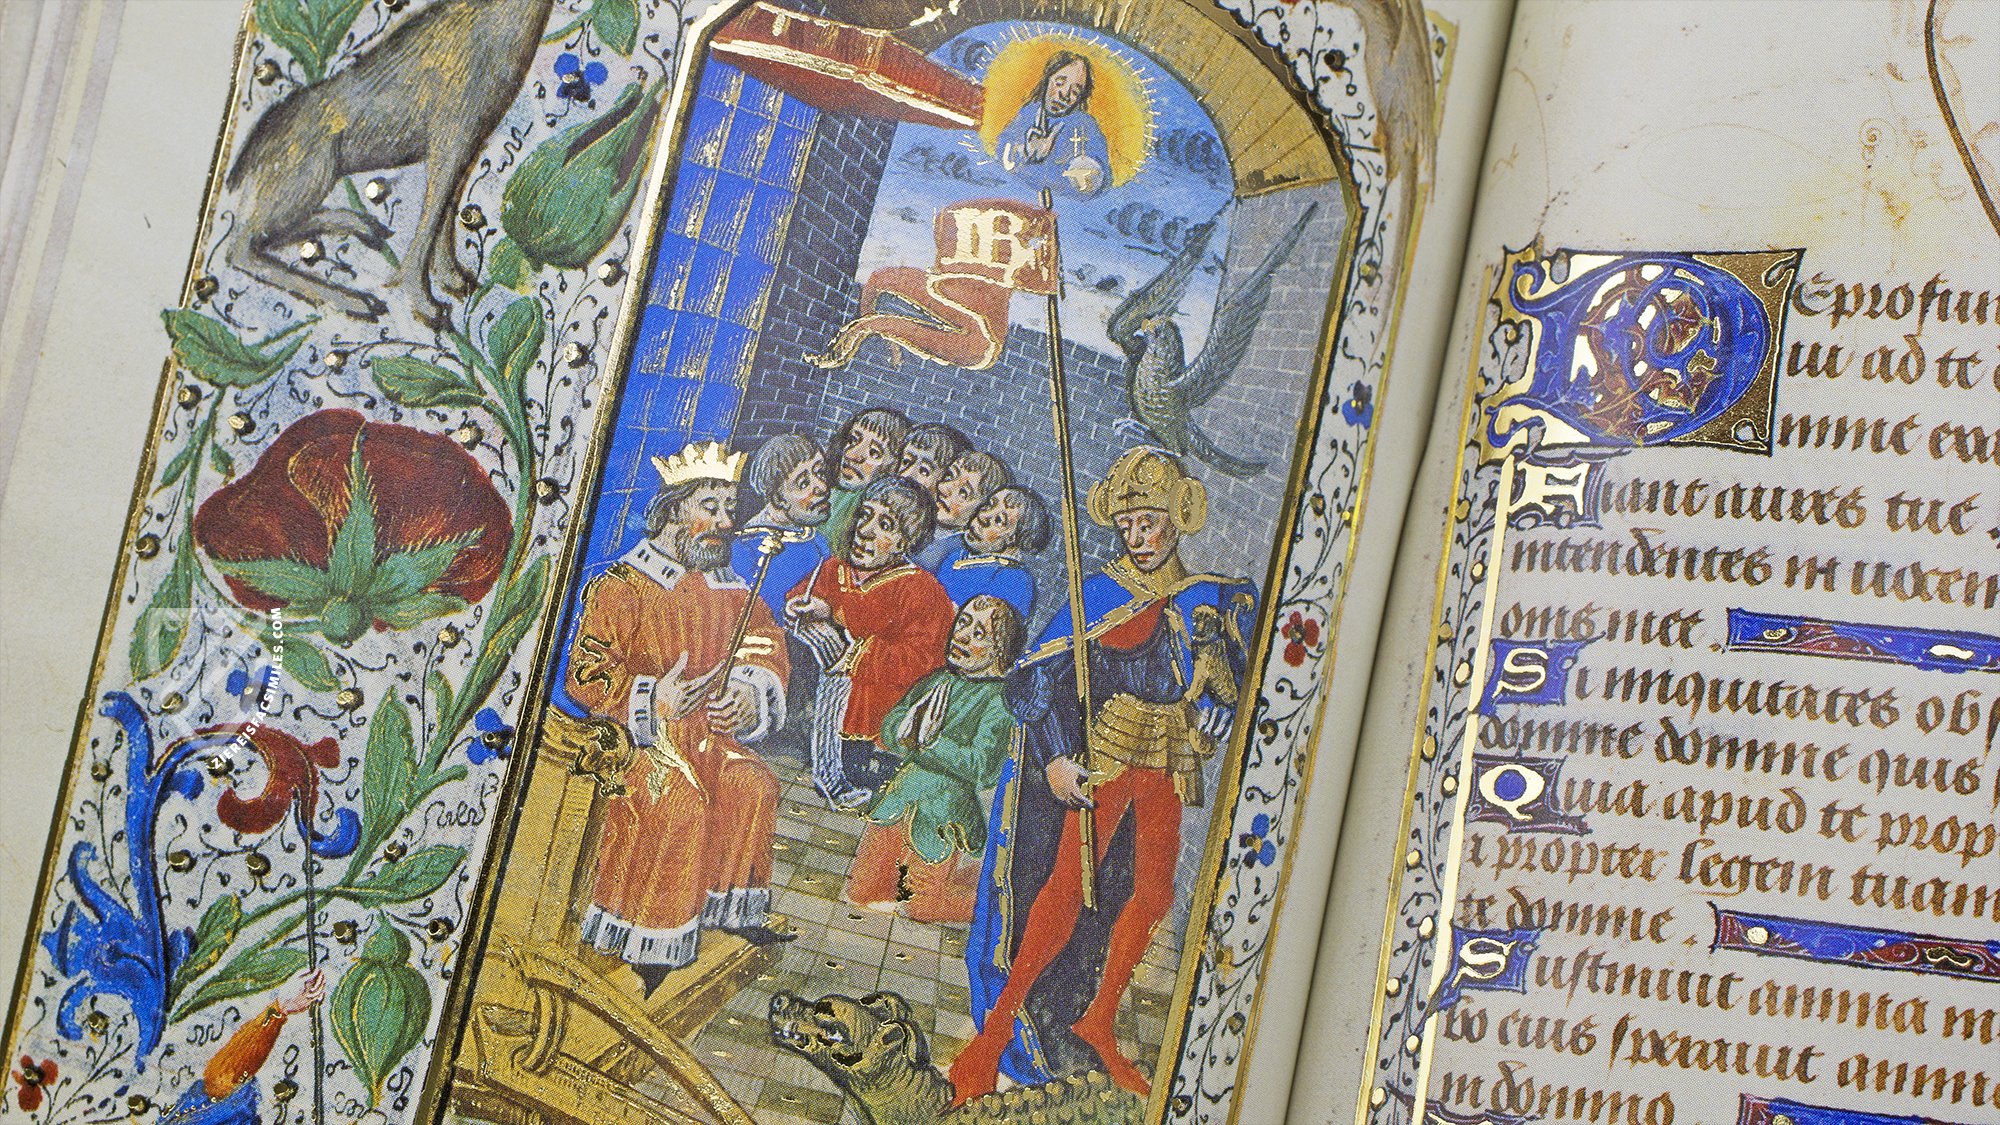 ZIEREISFACSIMILES.COM
DE profun
ui ad te
mine exau
Fiant aures tue
intendentes in uocem
onis mee.
Si iniquitates obs
domine domine quis s
Quia apud te prop
t propter legem tuam
te domine.
Sustinuit anima m
bo eius sperauit anima
in domino